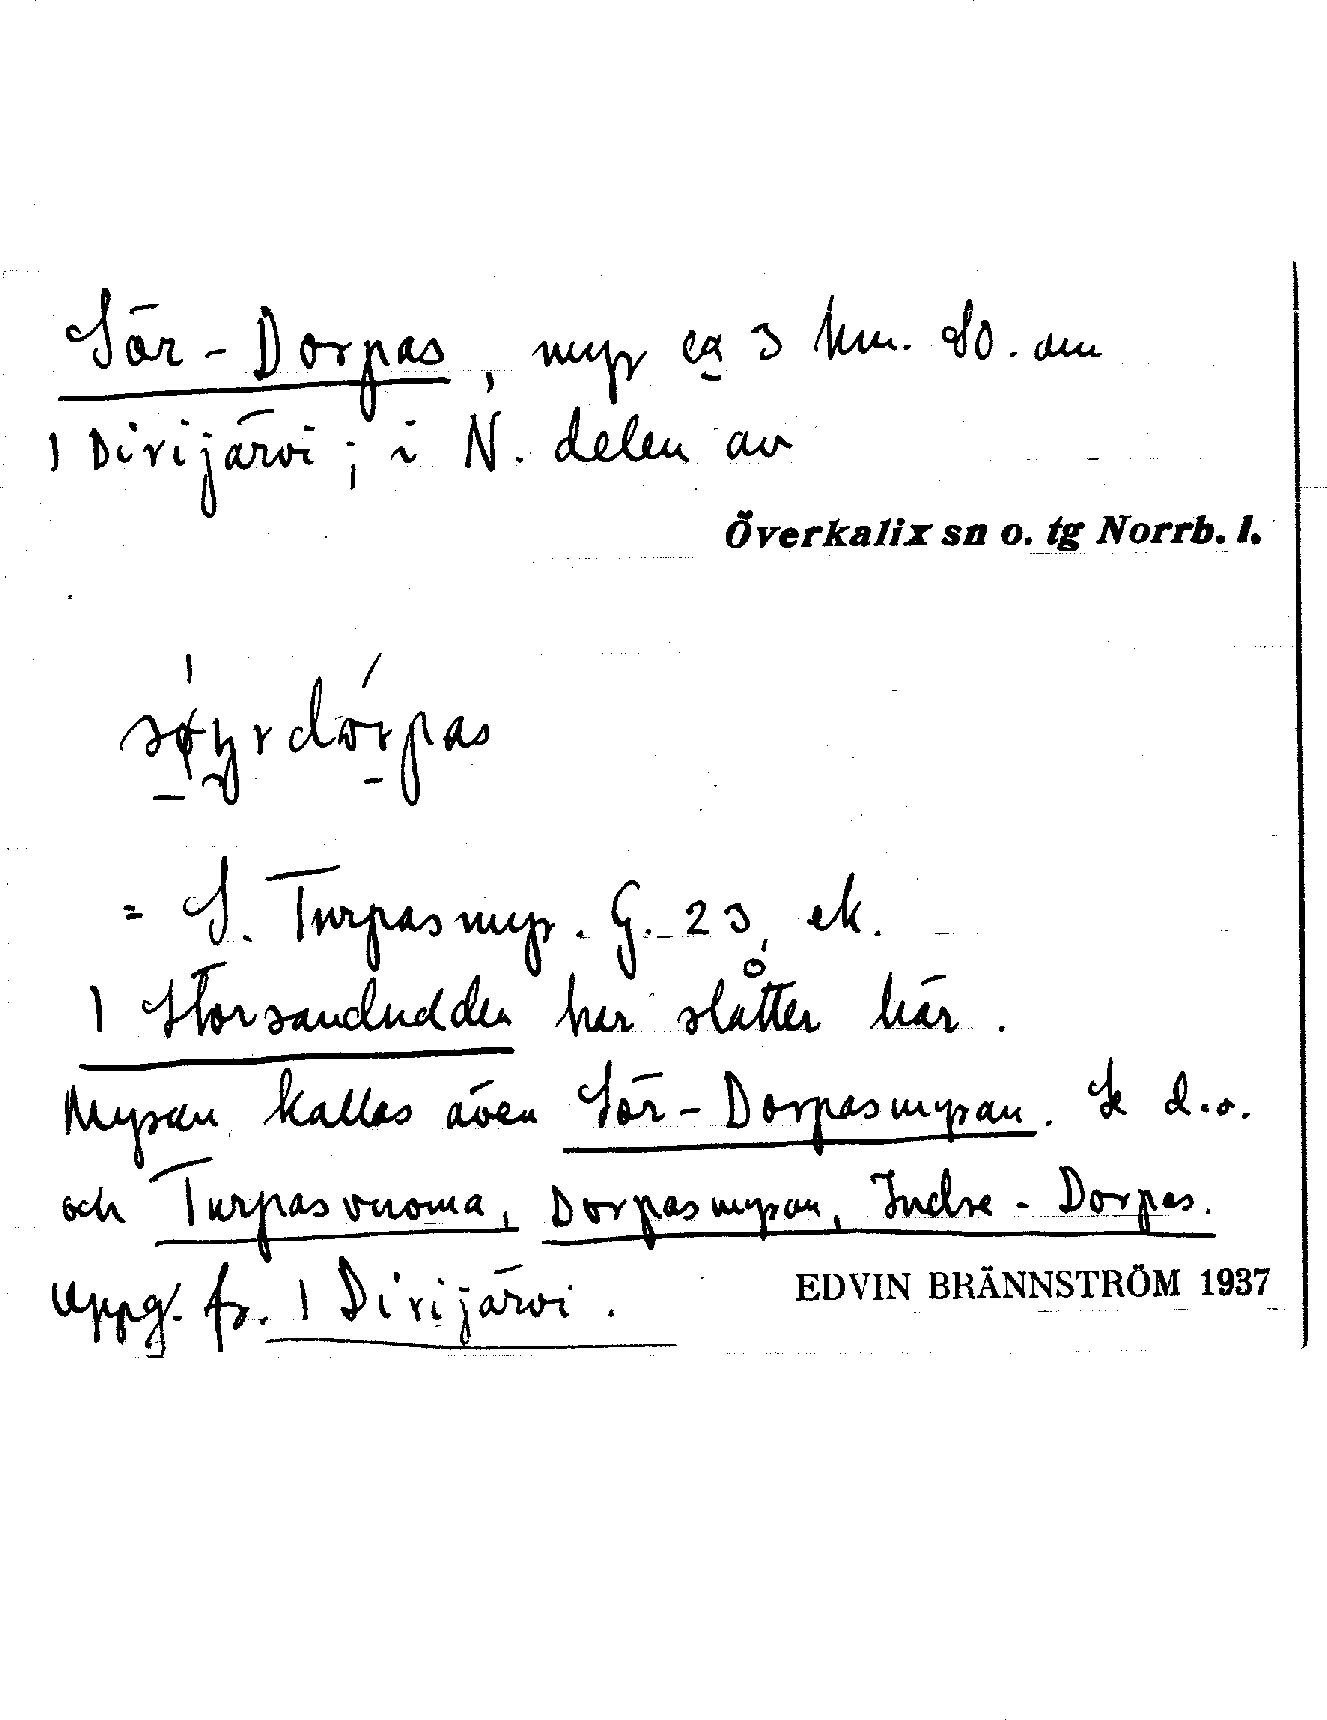 Sör-Dorpas, myr ca 3 km. SO. om
1 Dirijärvi; i N. delen av
Överkalix sn o. tg Norrb. l.
søyrdórpas
= S. Turpasmyr. G. 23, ek.
1 Storsandudden har slåtter här.
Myran kallas även Sör-Dorpasmyran. Se d.o.
och Turpasvuoma, Dorpasmyran, Indre-Dorpas.
Uppg. fr. 1 Dirijärvi.
EDVIN BRÄNNSTRÖM 1937